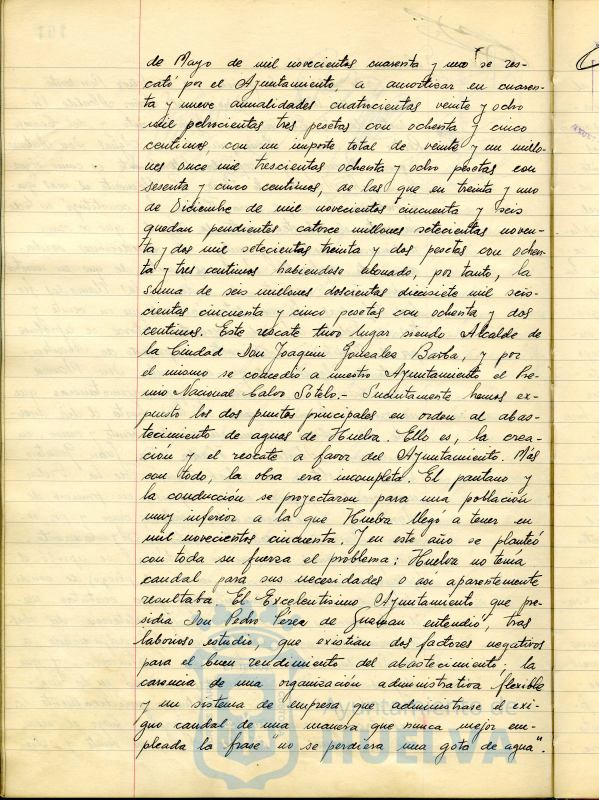 de Mayo de mil novecientos cuarenta y uno se res-
cató por el Ayuntamiento, a amortizar en cuaren-
ta y nueve anualidades cuatrocientas veinte y ocho
mil setecientas tres pesetas con ochenta y cinco
centimos, con un importe total de veinte y un millo-
nes once mil trescientas ochenta y ocho pesetas con
sesenta y cinco centimos, de las que en treinta y uno
de Diciembre de mil novecientos cincuenta y seis
quedan pendientes catorce millones setecientas noven-
ta y dos mil setecientas treinta y dos pesetas con ochen-
ta y tres centimos habiendose abonado, por tanto, la
suma de seis millones doscientas diecisiete mil seis-
cientas cincuenta y cinco pesetas con ochenta y dos
centimos. Este rescate tuvo lugar siendo Alcalde de
la Ciudad Don Joaquin Gonzalez Barba, y por
el mismo se concedió a nuestro Ayuntamiento el Pre-
mio Nacional Calvo Sotelo.- Sucintamente hemos ex-
puesto los dos puntos principales en orden al abas-
tecimiento de aguas de Huelva. Ello es, la crea-
ción y el rescate a favor del Ayuntamiento. Más
con todo, la obra era incompleta. El pantano y
la conducción se proyectaron para una población
muy inferior a la que Huelva llegó a tener en
mil novecientos cincuenta. Y en este año se planteó
con toda su fuerza el problema: Huelva no tenía
caudal para sus necesidades o así aparentemente
resultaba. El Excelentisimo Ayuntamiento que pre-
sidia Don Pedro Pérez de Guzman entendió, tras
laborioso estudio, que existian dos factores negativos
para el buen rendimiento del abastecimiento; la
carencia de una organización administrativa flexible
y un sistema de empresa que administrase el exi-
guo caudal de una manera que nunca mejor em-
pleada la frase "no se perdiera una gota de agua".
HUELVA